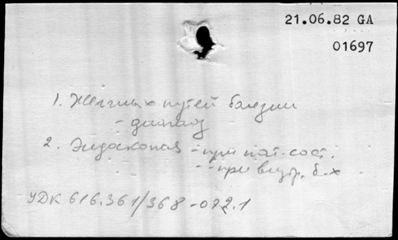 21.06.82 GA
01697
1. Желчных путей болезни
- диагноз
2. Эндоскопия - при пат. сост.
- при внутр. б-х
УДК 616.361/368-072.1